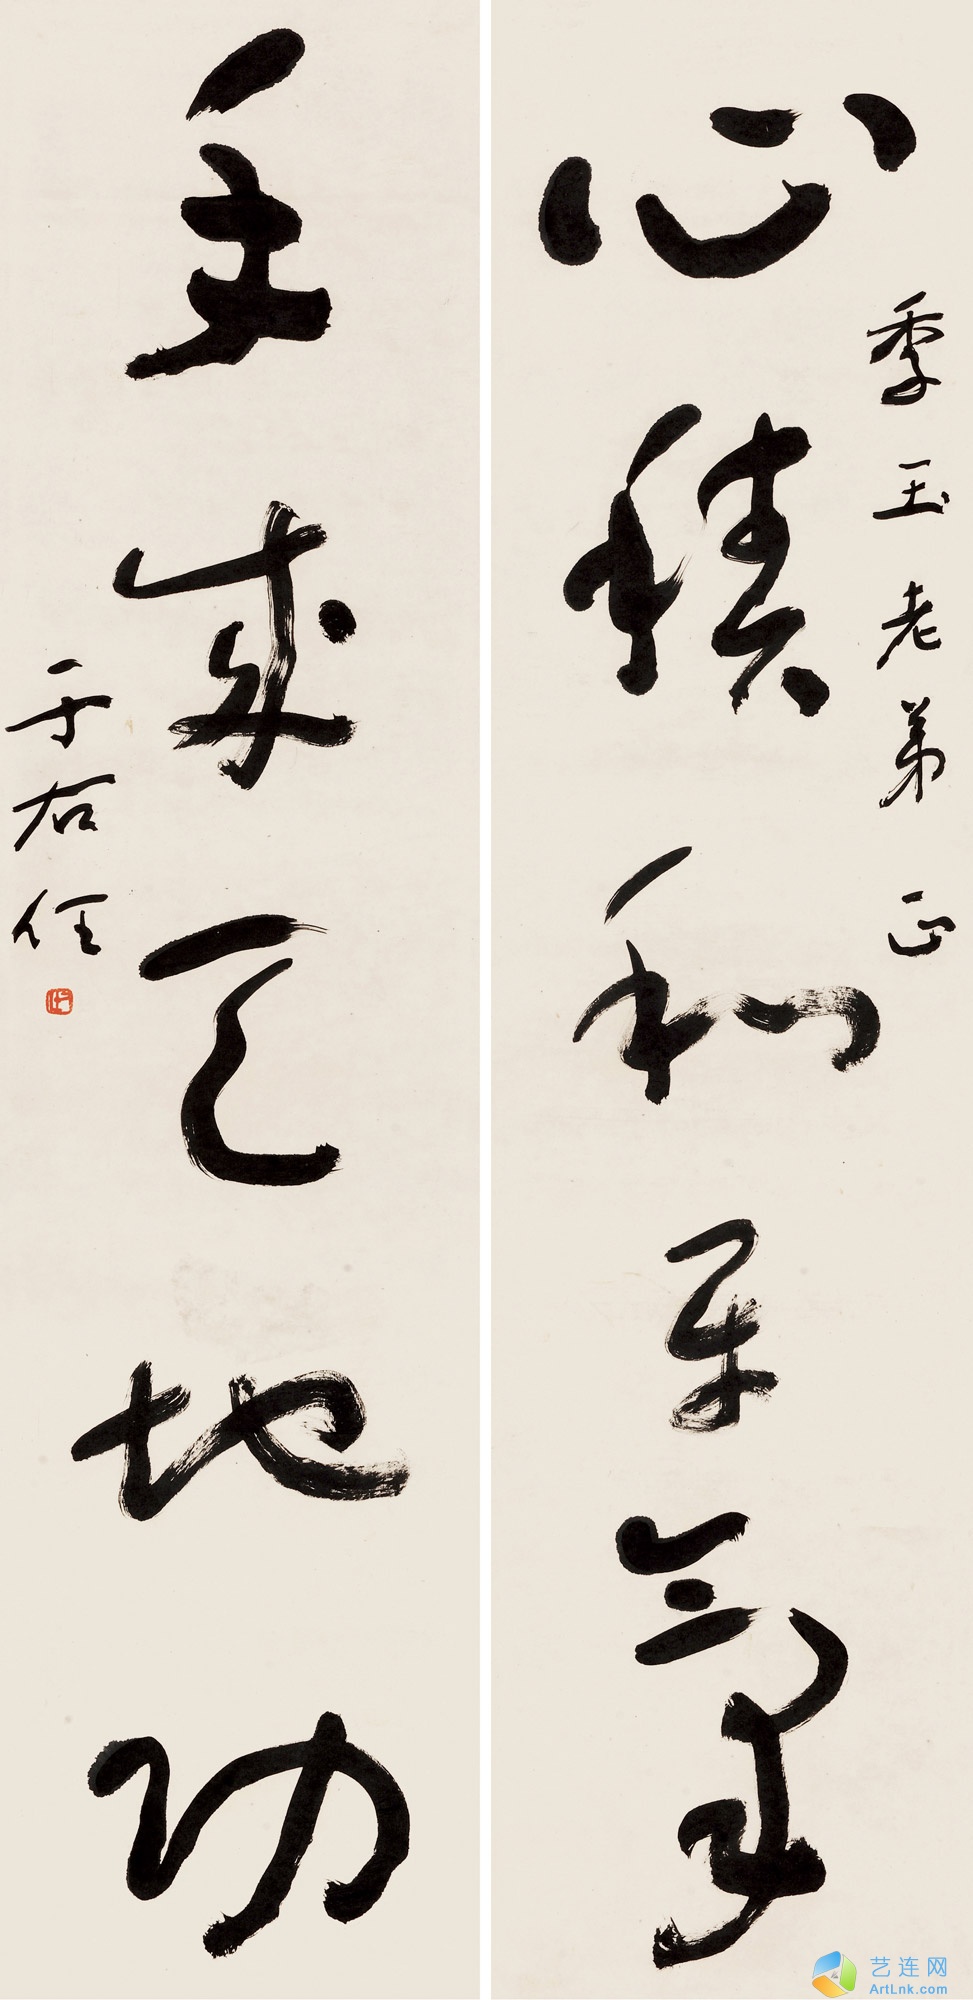 季玉老弟 正
心積和平氣
手成天地功
于右任
艺连网
ArtLnk.com